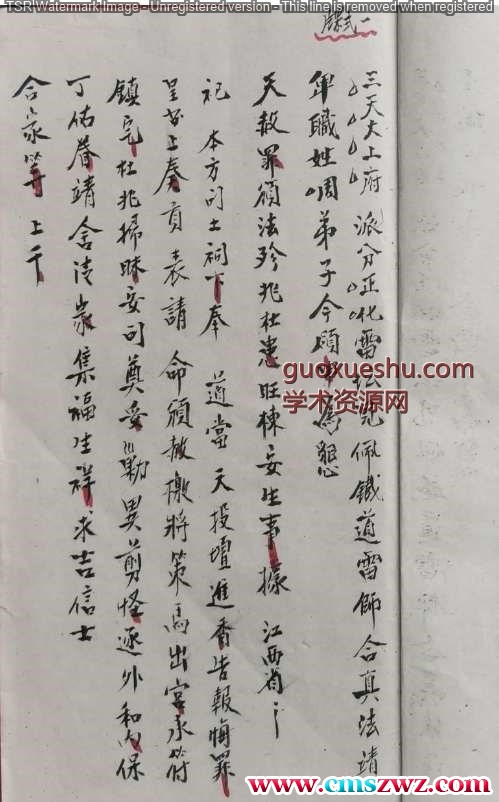 TSR Watermark Image - Unregistered version - This line is removed when registered
牒式一
三天大上府 派分正化雷坛 佩鐵道雷師合真法靖
卑職姓 弟子今願申為懇
天赦罪頒法殄兆杜患旺棟安生事據 江西省
祀 本方司土祠下奉 道當 天投壇進香告報悔罪
呈 上奏貢表請 命頒赦檄將策馬出宮承符
鎮宅杜兆掃 安司奠 異剪怪逐外和內保
丁佑眷靖舍清 集福生祥求吉信士
合家等 上千
guoxueshu.com
学术资源网
www.cmszwz.com